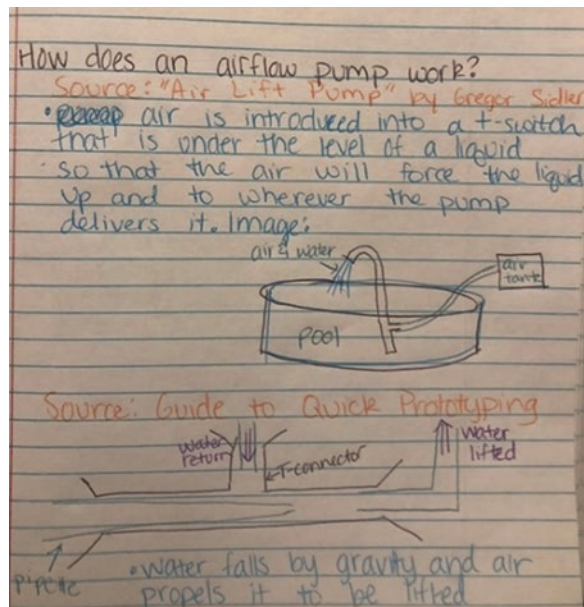 How does an airflow pump work?
Source: "Air Lift Pump" by Gregor Sidler
• air is introduced into a t-switch
that is under the level of a liquid
so that the air will force the liquid
up and to wherever the pump
delivers it. Image:
air & water
air tank
Pool
Source: Guide to Quick Prototyping
water return
T-connector
water lifted
pipette
• water falls by gravity and air
propels it to be lifted